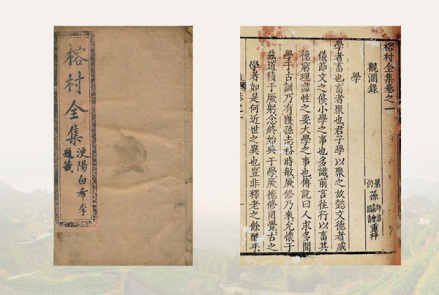 榕村全集
榕村全集卷之一
觀瀾錄
學
學者畜也畜者聚也君子學以聚之故懿文德者威
儀節文之修小學之事也多識前言往行以畜其
德窮理盡性之要大學之事也傳說曰人求多聞
學于古訓乃有獲孫志務時敏厥修乃來允懷于
茲道積于厥躬念終始典于學厥德修罔覺古之
學者如是何近世之異也豈非釋老之餘